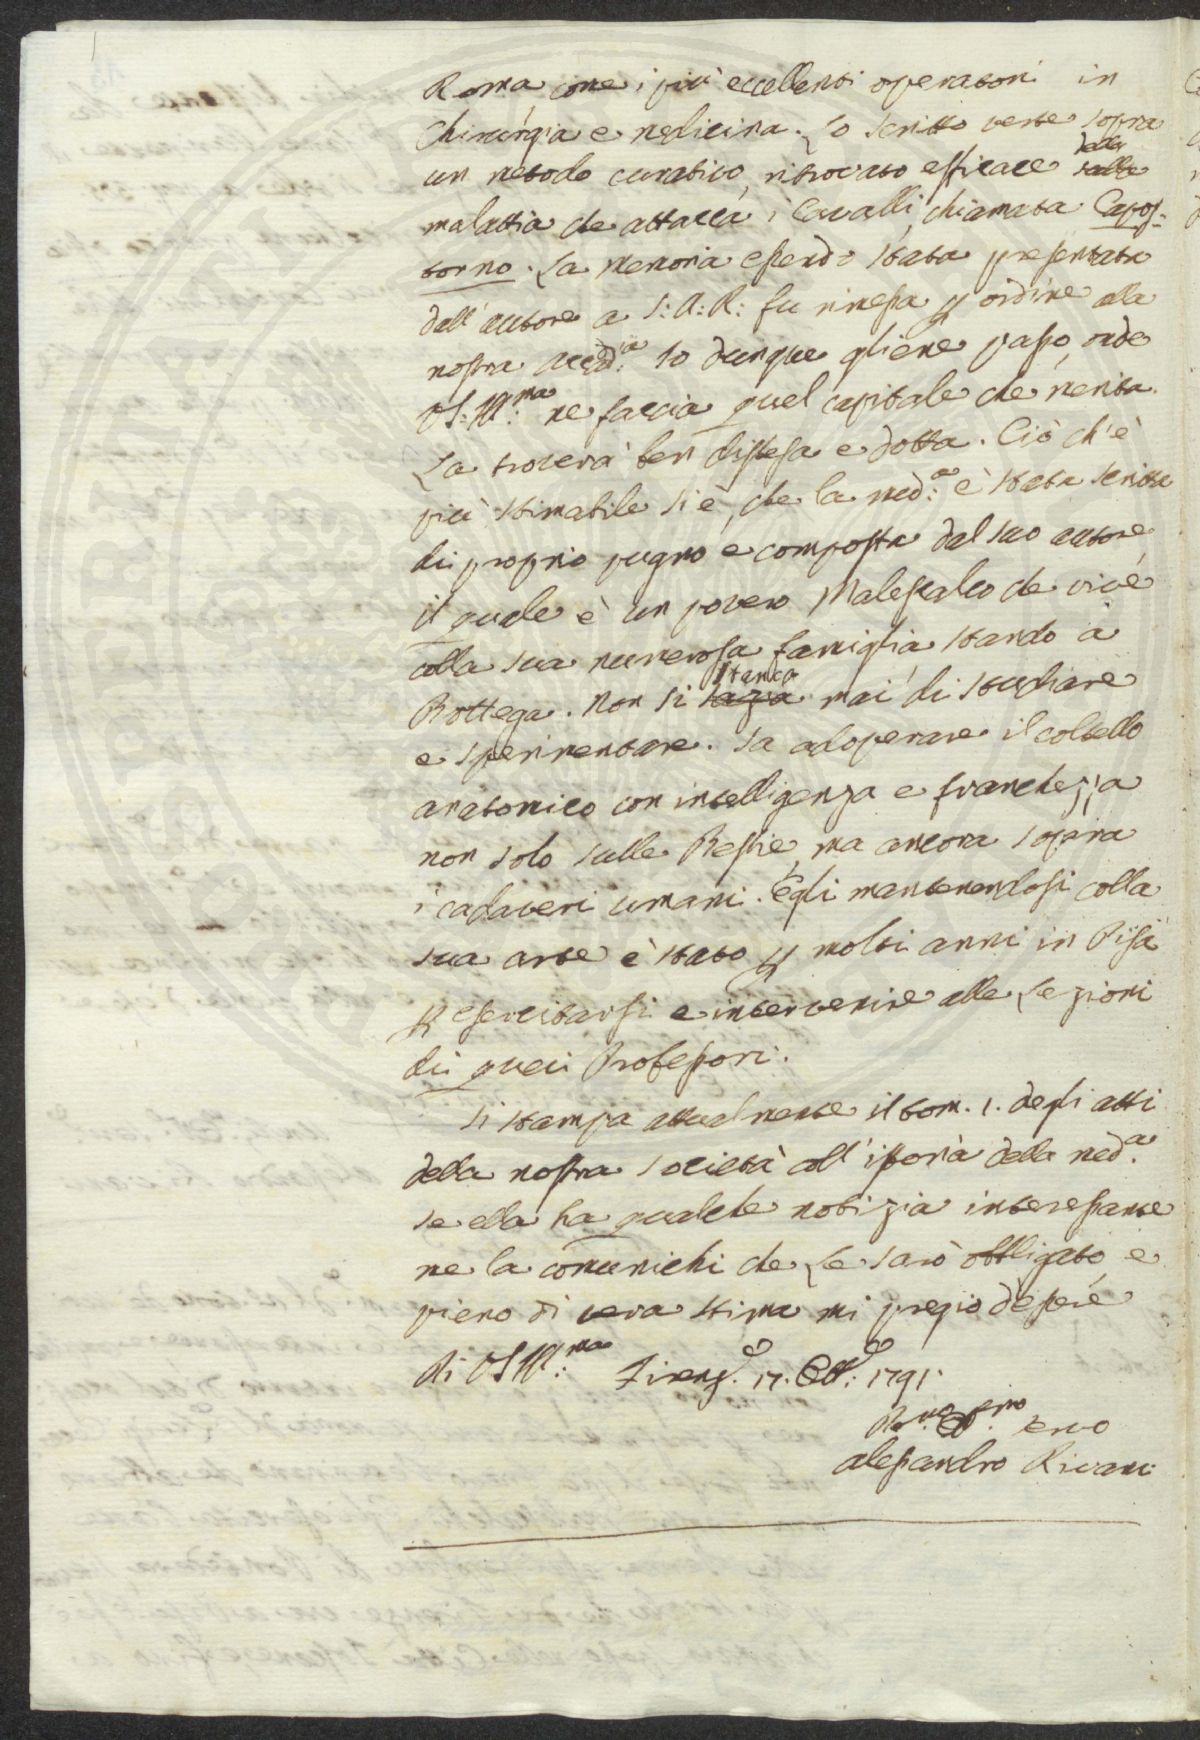 Roma come i più eccellenti operatori in
Chirurgia e medicina. Lo scritto verte sopra
un metodo curativo, ritrovato efficace sulla della
malattia che attacca i Cavalli, chiamata Capos-
torno. La memoria essendo stata presentata
dall'autore a S: A: R: fu rimessa p ordine alla
nostra accad:ia Io dunque gliene passo, onde
VS: Ill:ma ne faccia quel capitale che merita.
La troverà ben distesa e dotta. Ciò ch'è
più stimabile si è, che la med:a è stata scritta
di proprio pugno e composta dal suo autore
il quale è un povero Malescalco che vive
colla sua numerosa famiglia stando a
Bottega. Non si sazia stanca mai di studiare
e sperimentare. Sa adoperare il coltello
anatomico con intelligenza e franchezza
non solo sulle Bestie, ma ancora sopra
i cadaveri umani. Egli mantenendosi colla
sua arte è stato p molti anni in Pisa
p esercitarsi e intervenire alle Lezioni
di quei Professori.
Si stampa attualmente il tom. 1. degli atti
della nostra società coll'istoria della med:a
se ella ha qualche notizia interessante
me la comunichi che Le sarò obbligato, e
pieno di vera stima mi pregio d'essere
Di VS Ill:ma Firenze. 17. Ott:e 1791.
Servo
Alessandro Rivani